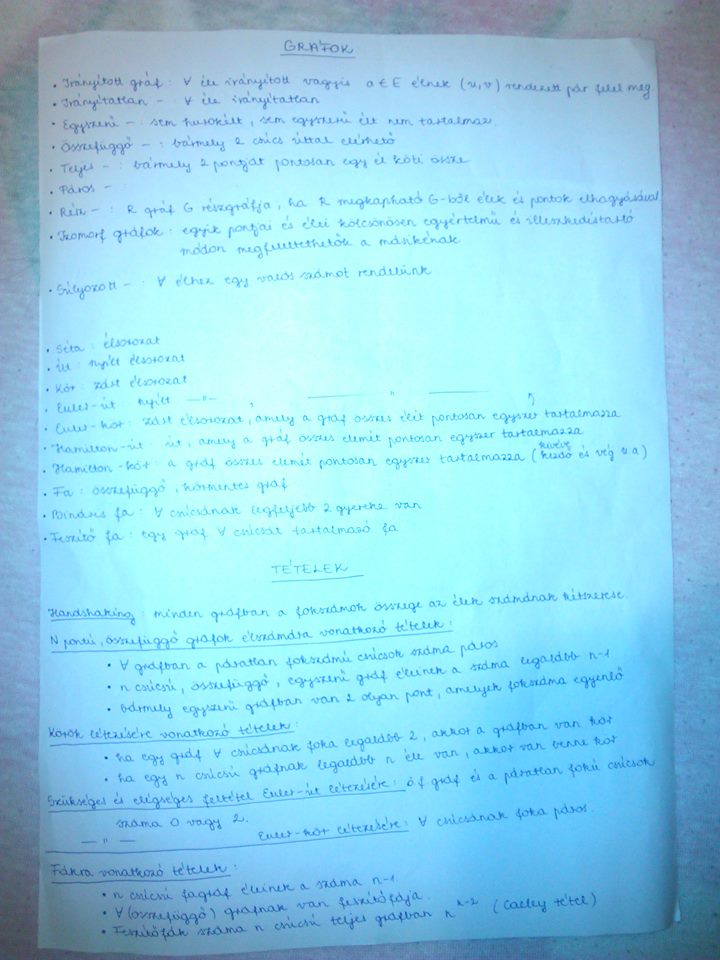 GRÁFOK
• Irányított gráf : ∀ éle irányított vagyis a ∈ E élnek (u,v) rendezett pár felel meg
• Irányítatlan – : ∀ éle irányítatlan
• Egyszerű – : sem hurokélt, sem egyszerű élt nem tartalmaz.
• Összefüggő – : bármely 2 csúcs úttal elérhető
• Teljes – : bármely 2 pontját pontosan egy él köti össze
• Páros – :
• Rész – : R gráf G részgráfja, ha R megkapható G-ből élek és pontok elhagyásával
• Izomorf gráfok : egyik pontjai és élei kölcsönösen egyértelmű és illeszkedéstartó
módon megfeleltethetők a másikénak
• Súlyozott – : ∀ élhez egy valós számot rendelünk
• Séta : élsorozat
• Út : nyílt élsorozat
• Kör : zárt élsorozat
• Euler-út : nyílt —"— , ——— " ——— "
• Euler-kör : zárt élsorozat, amely a gráf összes élét pontosan egyszer tartalmazza
• Hamilton-út : út, amely a gráf összes elemét pontosan egyszer tartalmazza
• Hamilton-kör : a gráf összes elemét pontosan egyszer tartalmazza (kivéve kezdő és vég u a)
• Fa : összefüggő, körmentes gráf
• Bináris fa : ∀ csúcsának legfeljebb 2 gyereke van
• Feszítő fa : egy gráf ∀ csúcsát tartalmazó fa
TÉTELEK
Handshaking : minden gráfban a fokszámok összege az élek számának kétszerese.
N pontú, összefüggő gráfok élszámára vonatkozó tételek :
• ∀ gráfban a páratlan fokszámú csúcsok száma páros
• n csúcsú, összefüggő, egyszerű gráf éleinek a száma legalább n-1
• bármely egyszerű gráfban van 2 olyan pont, amelyek fokszáma egyenlő
Körök létezésére vonatkozó tételek :
• ha egy gráf ∀ csúcsának foka legalább 2, akkor a gráfban van kör
• ha egy n csúcsú gráfnak legalább n éle van, akkor van benne kör
Szükséges és elégséges feltétel Euler-út létezésére : öf gráf és a páratlan fokú csúcsok
száma 0 vagy 2.
— " — Euler-kör létezésére : ∀ csúcsának foka páros.
Fákra vonatkozó tételek :
• n csúcsú fagráf éleinek a száma n-1.
• ∀ (összefüggő) gráfnak van feszítőfája.
• Feszítőfák száma n csúcsú teljes gráfban n^n-2 (Caeley tétel)